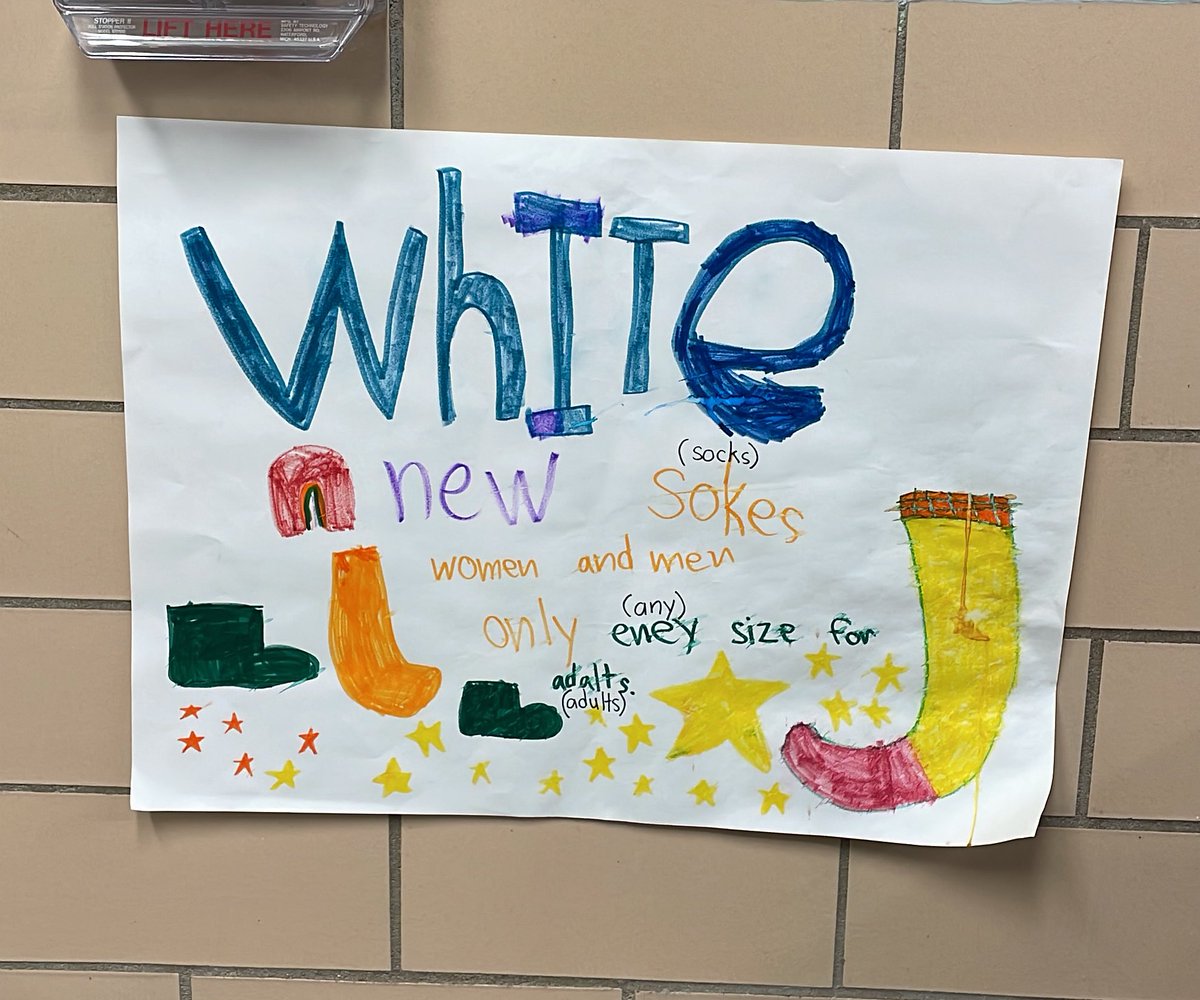 STOPPER II
LIFT HERE
SAFETY TECHNOLOGY
WhITe
(socks)
new sokes
women and men
(any)
only eney size for
adalts.
(adults)